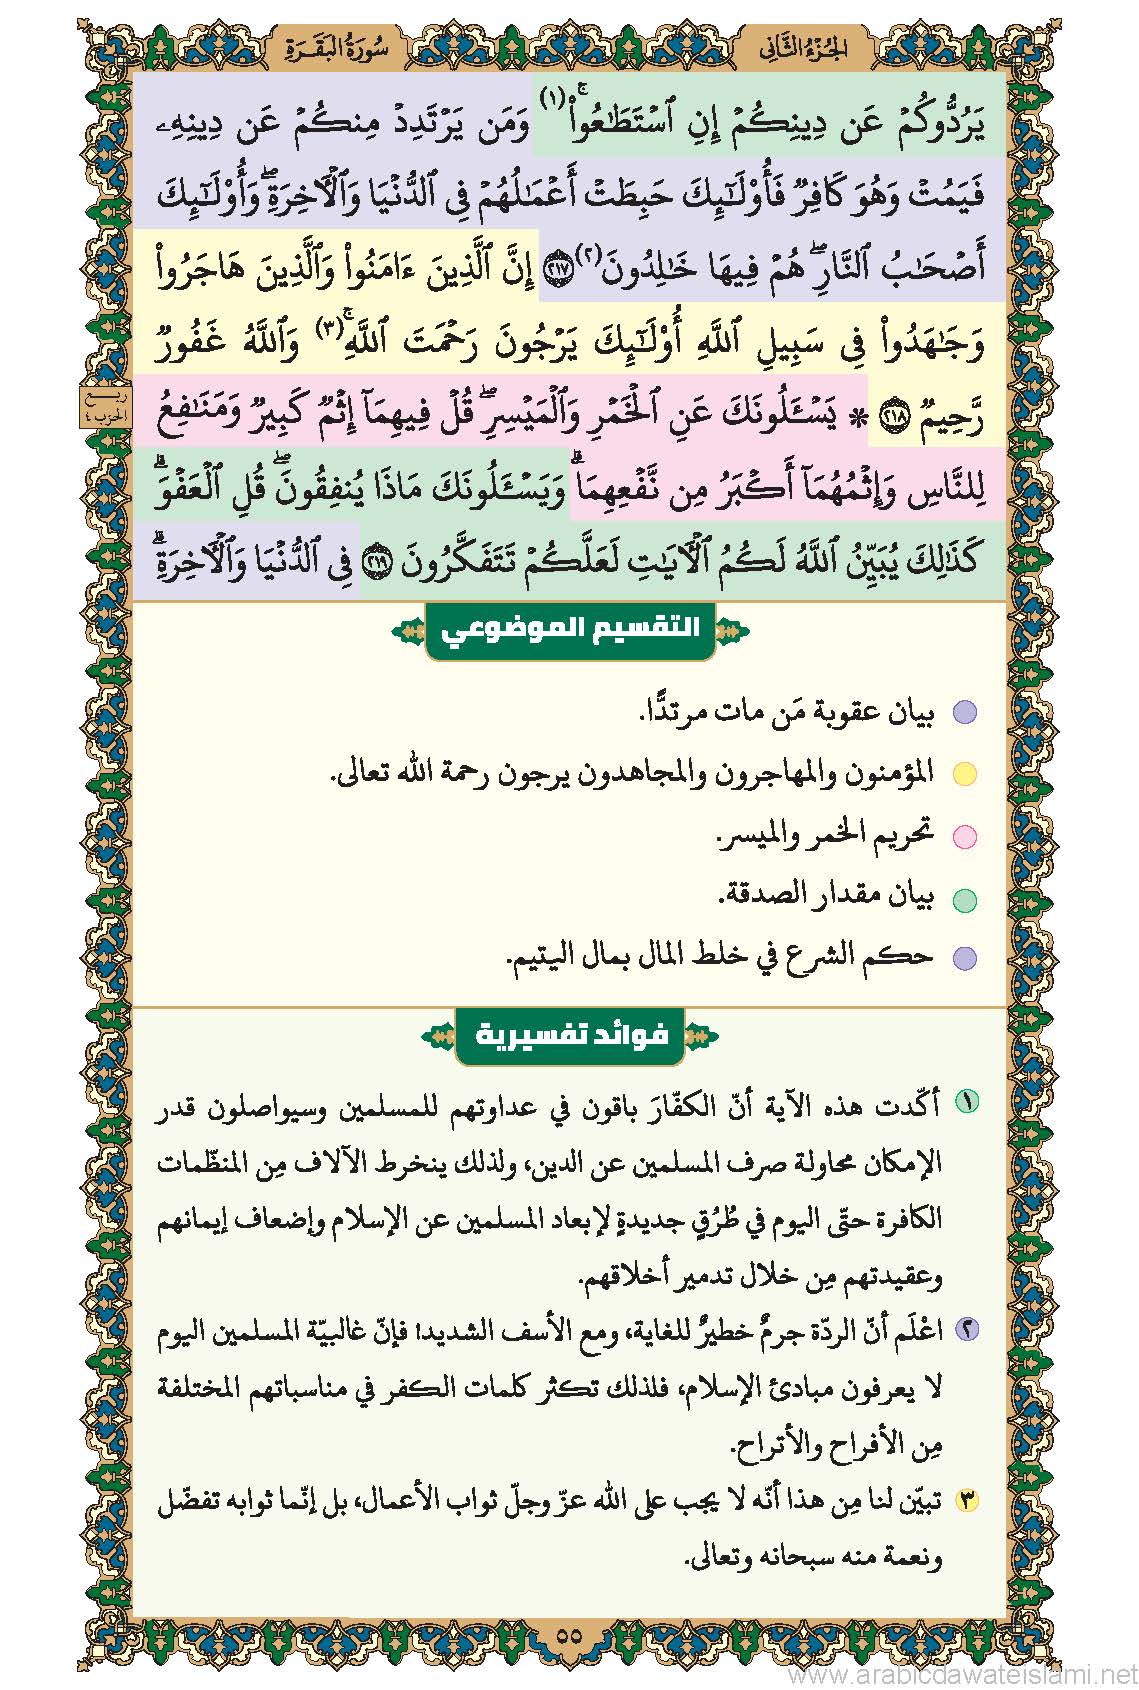 الجُزْءُ الثَّانِي
سُورَةُ الْبَقَرَةِ
يَرُدُّوكُمۡ عَن دِينِكُمۡ إِنِ ٱسۡتَطَٰعُواْۚ (١) وَمَن يَرۡتَدِدۡ مِنكُمۡ عَن دِينِهِۦ
فَيَمُتۡ وَهُوَ كَافِرٞ فَأُوْلَٰٓئِكَ حَبِطَتۡ أَعۡمَٰلُهُمۡ فِي ٱلدُّنۡيَا وَٱلۡأٓخِرَةِۖ وَأُوْلَٰٓئِكَ
أَصۡحَٰبُ ٱلنَّارِۖ هُمۡ فِيهَا خَٰلِدُونَ (٢) ٢١٧ إِنَّ ٱلَّذِينَ ءَامَنُواْ وَٱلَّذِينَ هَاجَرُواْ
وَجَٰهَدُواْ فِي سَبِيلِ ٱللَّهِ أُوْلَٰٓئِكَ يَرۡجُونَ رَحۡمَتَ ٱللَّهِۚ (٣) وَٱللَّهُ غَفُورٞ
ربع
الحزب ٤
رَّحِيمٞ ٢١٨ * يَسۡـَٔلُونَكَ عَنِ ٱلۡخَمۡرِ وَٱلۡمَيۡسِرِۖ قُلۡ فِيهِمَآ إِثۡمٞ كَبِيرٞ وَمَنَٰفِعُ
لِلنَّاسِ وَإِثۡمُهُمَآ أَكۡبَرُ مِن نَّفۡعِهِمَاۗ وَيَسۡـَٔلُونَكَ مَاذَا يُنفِقُونَۖ قُلِ ٱلۡعَفۡوَۗ
كَذَٰلِكَ يُبَيِّنُ ٱللَّهُ لَكُمُ ٱلۡأٓيَٰتِ لَعَلَّكُمۡ تَتَفَكَّرُونَ ٢١٩ فِي ٱلدُّنۡيَا وَٱلۡأٓخِرَةِۗ
التقسيم الموضوعي
بيان عقوبة مَن مات مرتدًّا.
المؤمنون والمهاجرون والمجاهدون يرجون رحمة الله تعالى.
تحريم الخمر والميسر.
بيان مقدار الصدقة.
حكم الشرع في خلط المال بمال اليتيم.
فوائد تفسيرية
١ أكّدت هذه الآية أنّ الكفّارَ باقون في عداوتهم للمسلمين وسيواصلون قدر
الإمكان محاولة صرف المسلمين عن الدين، ولذلك ينخرط الآلاف مِن المنظّمات
الكافرة حتّى اليوم في طُرُقٍ جديدةٍ لإبعاد المسلمين عن الإسلام وإضعاف إيمانهم
وعقيدتهم مِن خلال تدمير أخلاقهم.
٢ اعْلَم أنّ الردّة جرمٌ خطيرٌ للغاية، ومع الأسف الشديد! فإنّ غالبيّة المسلمين اليوم
لا يعرفون مبادئ الإسلام، فلذلك تكثر كلمات الكفر في مناسباتهم المختلفة
مِن الأفراح والأتراح.
٣ تبيّن لنا مِن هذا أنّه لا يجب على الله عزّ وجلّ ثواب الأعمال، بل إنّما ثوابه تفضّل
ونعمة منه سبحانه وتعالى.
٥٥
www.arabicdawateislami.net